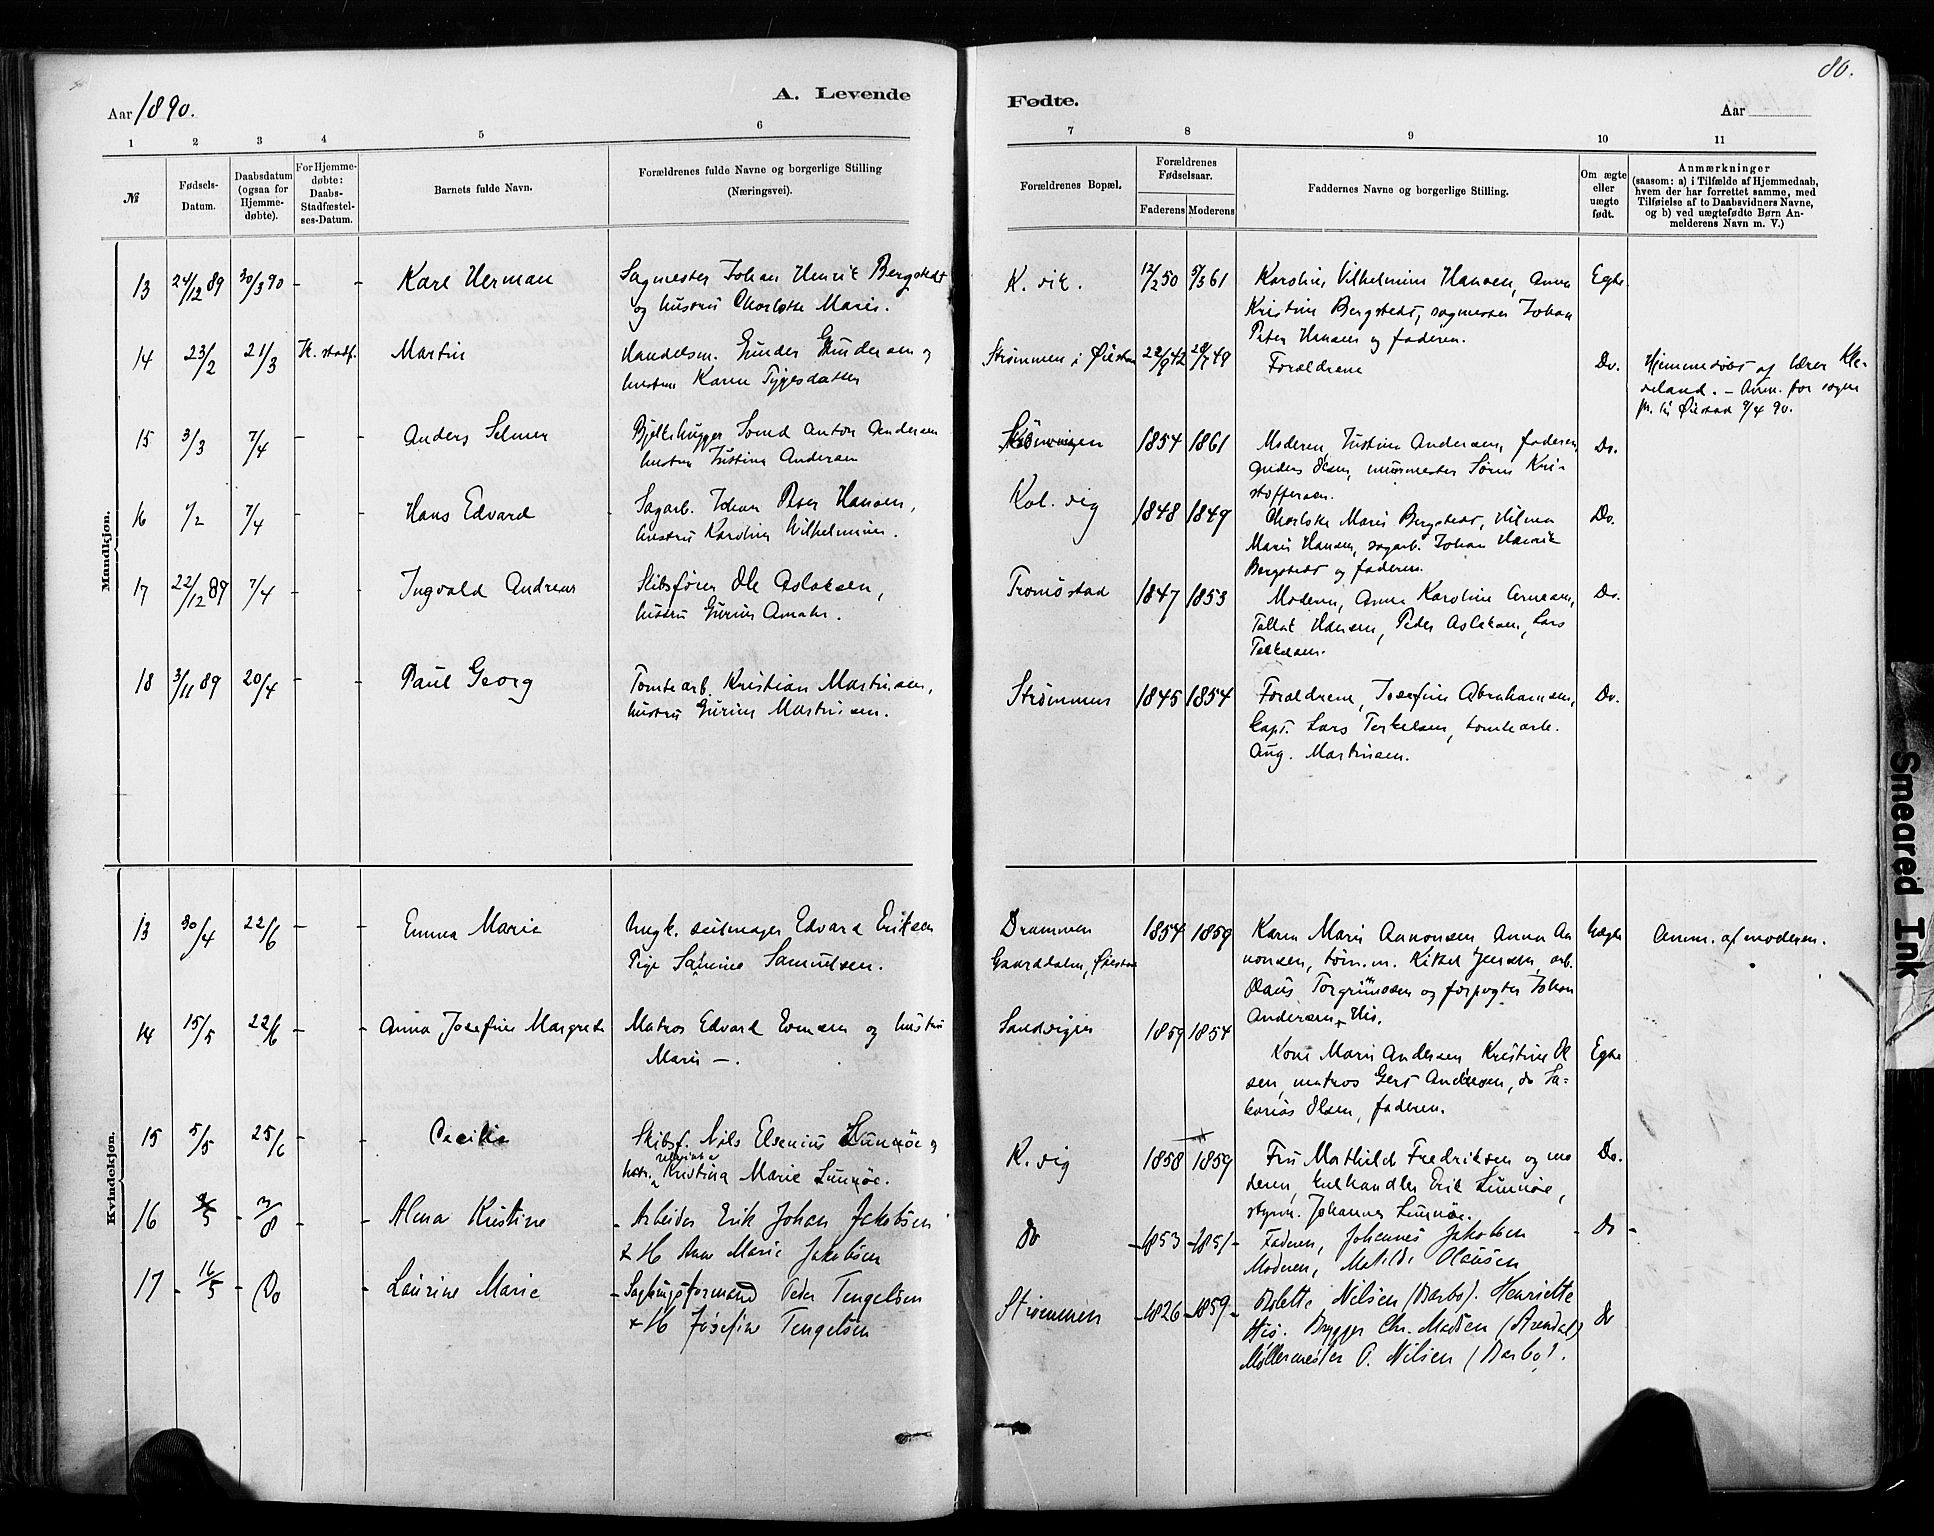 80.
Aar 1890.
A. Levende
Fødte.
Aar
1 2 3 4 5 6 7 8 9 10 11
№
Fødsels-
Datum.
Daabsdatum
(ogsaa for
Hjemme-
døbte).
For Hjemme-
døbte:
Daabs-
Stadfæstel-
ses-Datum.
Barnets fulde Navn.
Forældrenes fulde Navne og borgerlige Stilling
(Næringsvei).
Forældrenes Bopæl.
Forældrenes
Fødselsaar.
Faderens Moderens
Faddernes Navne og borgerlige Stilling.
Om ægte
eller
uægte
født.
Anmærkninger
(saasom: a) i Tilfælde af Hjemmedaab,
hvem der har forrettet samme, med
Tilføielse af to Daabsvidners Navne,
og b) ved uægtefødte Børn An-
melderens Navn m. V.)
Mandkjøn.
13 24/12 89 30/3 90 - - Karl Herman
Sagmester Johan Henrik Bergstedt
og hustru Charlotte Marie.
K. vik. 12/2 50 5/3 61
Karoline Vilhelmine Hansen, Anna
Kristine Bergstedt, sagmester Johan
Peter Hansen og faderen.
Egte
14 23/2 21/3 K. stadf. Martin
Handelsm. Gunder Gundersen og
hustru Karen Tygesdatter
Strømmen i Øiestad 22/9 42 49
Forældrene
Do.
Hjemmedøbt af lærer Kle-
veland. - Anm. for sogne
pr. til Øiestad 9/4 90.
15 3/3 7/4 - - Anders Selmer
Bjelkehugger Anton Andersen
hustru Justine Andersen
1854 1861
Moderen, Justine Andersen, faderen,
Anders Olsen, murmester Søren Kri-
stoffersen.
Do.
16 /2 7/4 - - Hans Edvard
Sagarb. Johan Peter Hansen,
hustru Karoline Vilhelmine.
Kol. vig 1848 1849
Charlotte Marie Bergstedt, Hilma
Marie Hansen, sagarb. Johan Henrik
Bergstedt og faderen.
Do.
17 22/12 89 7/4 - - Ingvald Andreas
Skibsfører Ole Aslaksen,
hustru Gurine Amalie.
Tromøstad 1847 1853
Moderen, Anna Karoline Arnesen,
Tallak Hansen, Peder Aslaksen, Lars
Terkelsen.
Do.
18 3/11 89 20/4 - - Paul Georg
Tomtearb. Kristian Martinsen,
hustru Gurine Martinsen.
Strømmen 1845 1854
Forældrene, Josefine Abrahamsen,
Capt. Lars Terkelsen, tomtearb.
Aug. Martinsen.
Do.
Kvindekjøn.
13 30/4 22/6 - - Emma Marie
Ungk. seilmager Edvard Eriksen
Pige Samine Samuelsen.
Drammen
Gaarddalen, Øiestad
1854 1859
Karen Marie Aanonsen, Anna Aa-
nonsen, tøm.m. Kittel Jensen, arb.
Olaus Torgrimsen og forpagter Johan
Andersen, His.
Uægte
Anm. af moderen.
14 15/5 22/6 - - Anna Josefine Margrete
Matros Edvard Evensen og hustru
Marie -.
Sandvigen 1859 1854
Marie Andersen, Kristine Ol
sen, matros Gert Andersen, do Sa-
karias Olsen, faderen.
Egte
15 5/5 25/6 - - Cecilie
Skibsf. Nils Elsenius Lunnøe og
hstr. Kristina Marie Lunnøe.
K. vig 1858 1859
Fru Mathilde Fredriksen og mo
deren, kulhandler Erik Lunnøe,
styrm. Johannes Lunnøe.
Do.
16 /5 - 3/8 - - Alma Kristine
- Arbeider Erik Johan Jakobsen
+ H Anne Marie Jakobsen
Do - 1853 - 1851 -
Faderen, Johannes Jakobsen
Moderen, Matilde Hansen
- Do -
17 - 16/5 - Do - Laurine Marie
- Sagbrugsformand Peder Tengelsen
+ H Josefine Tengelsen
Strømmen - 1826 - 1859 -
Nilsen (Barbo). Henriette
His. Brygger Chr. Madsen (Arendal)
Møllermester P. Nilsen (Barbo).
Do
Smeared Ink